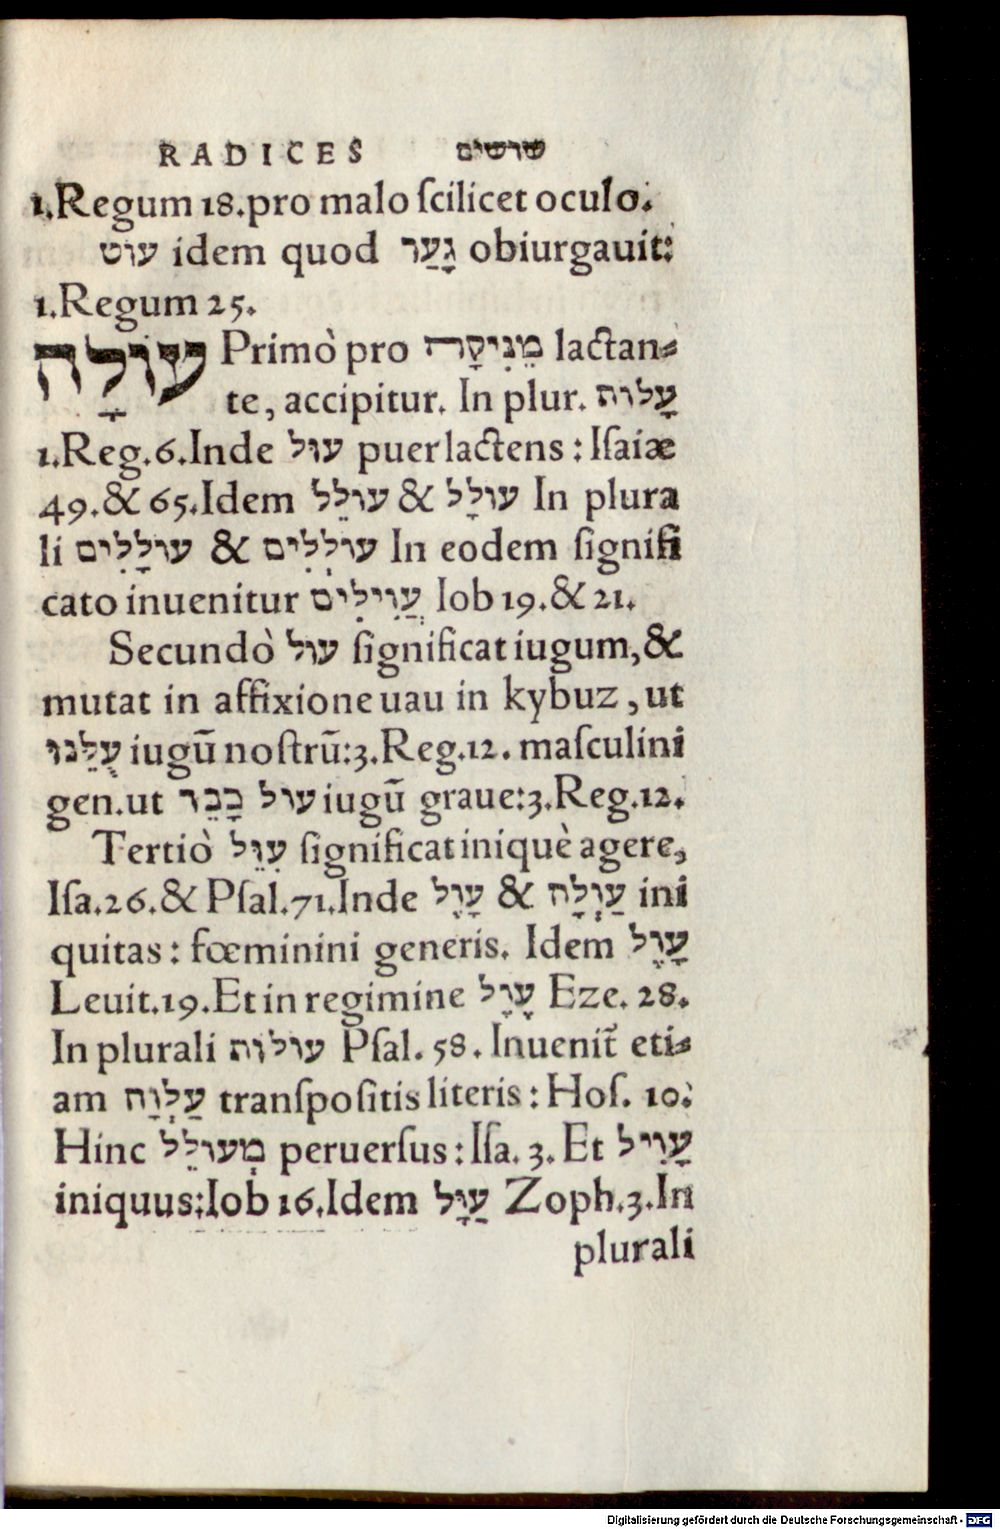 RADICES שרשים
1.Regum 18.pro malo ſcilicet oculo.
עוט idem quod גָעַר obiurgauit:
1.Regum 25.
עוֹלָה Primò pro מֵנִיקָה lactan⸗
te, accipitur. In plur. עָלוֹת
1.Reg.6.Inde עוּל puer lactens : Iſaiæ
49.& 65.Idem עוֹלֵל & עוֹלָל In plura
li עוֹלָלִים & עוֹלְלִים In eodem ſignifi
cato inuenitur עֲוִילִים Iob 19.& 21.
Secundò עוֹל ſignificat iugum,&
mutat in affixione uau in kybuz , ut
עֻלֵנוּ iugū noſtrū:3.Reg.12. maſculini
gen.ut עוֹל כָבֵד iugū graue:3.Reg.12.
Tertiò עִוֵּל ſignificat iniquè agere,
Iſa.26.& Pſal.71.Inde עָוֶל & עַוְלָה ini
quitas : fœminini generis. Idem עָוֶל
Leuit.19.Et in regimine עָוֶל Eze. 28.
In plurali עוֹלוֹת Pſal. 58. Inuenit̄ eti⸗
am עַלְוָה tranſpoſitis literis : Hoſ. 10.
Hinc מְעוֹלֵל peruerſus : Iſa. 3. Et עָוִיל
iniquus:Iob 16.Idem עַוָּל Zoph.3.In
plurali
Digitalisierung gefördert durch die Deutsche Forschungsgemeinschaft - DFG